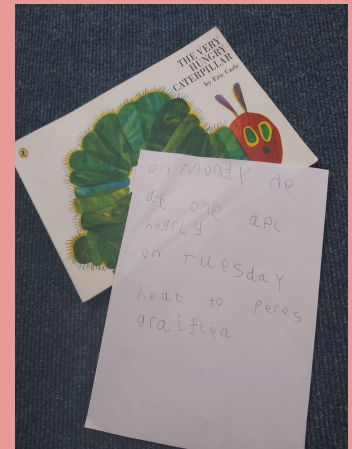 THE VERY
HUNGRY
CATERPILLAR
by Eric Carle
on MondY he
at one apl
hogrly
on TUesdaY
heat to Peres
graiflea